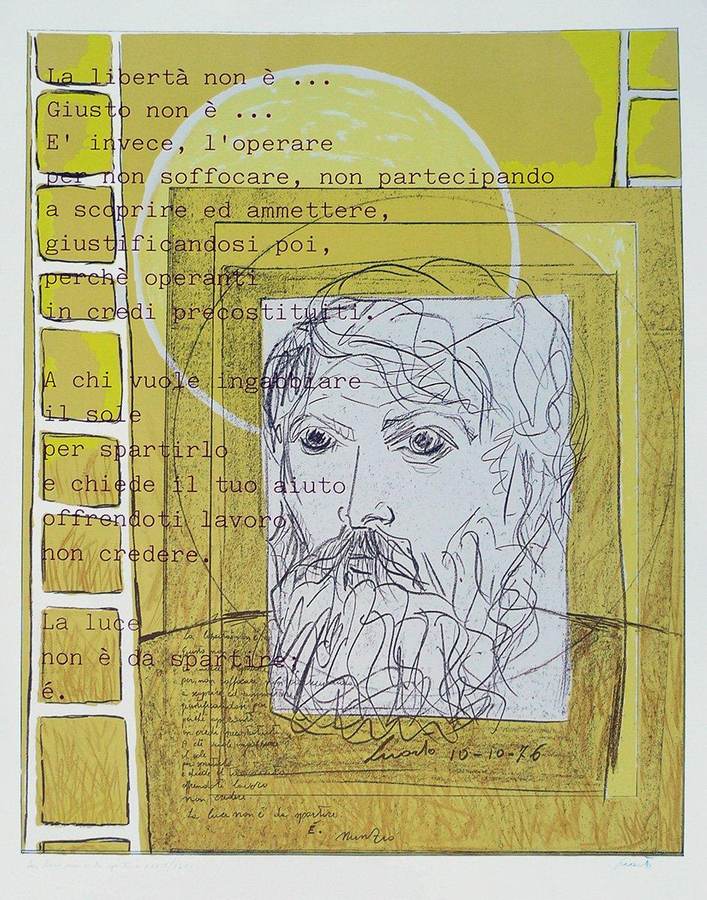 La libertà non è ...
Giusto non è ...
E' invece, l'operare
per non soffocare, non partecipando
a scoprire ed ammettere,
giustificandosi poi,
perchè operanti
in credi precostituiti.
A chi vuole ingabbiare
il sole
per spartirlo
e chiede il tuo aiuto
offrendoti lavoro
non credere.
La luce
non è da spartire:
é.
per non soffocare
a scoprire ed
giustificandosi poi
perchè operanti
in credi precostituiti
A chi vuole ingabbiare
il sole
per spartirlo
e chiede il tuo aiuto
offrendoti lavoro
non credere
La luce non è da spartire
É.
Nunzio
10-10-76